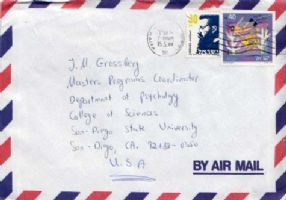 J. M. Grossberg
Masters Programs Coordinator
Department of Psychology
College of Sciences
San-Diego State University
San-Diego, CA.
U.S.A
BY AIR MAIL
40